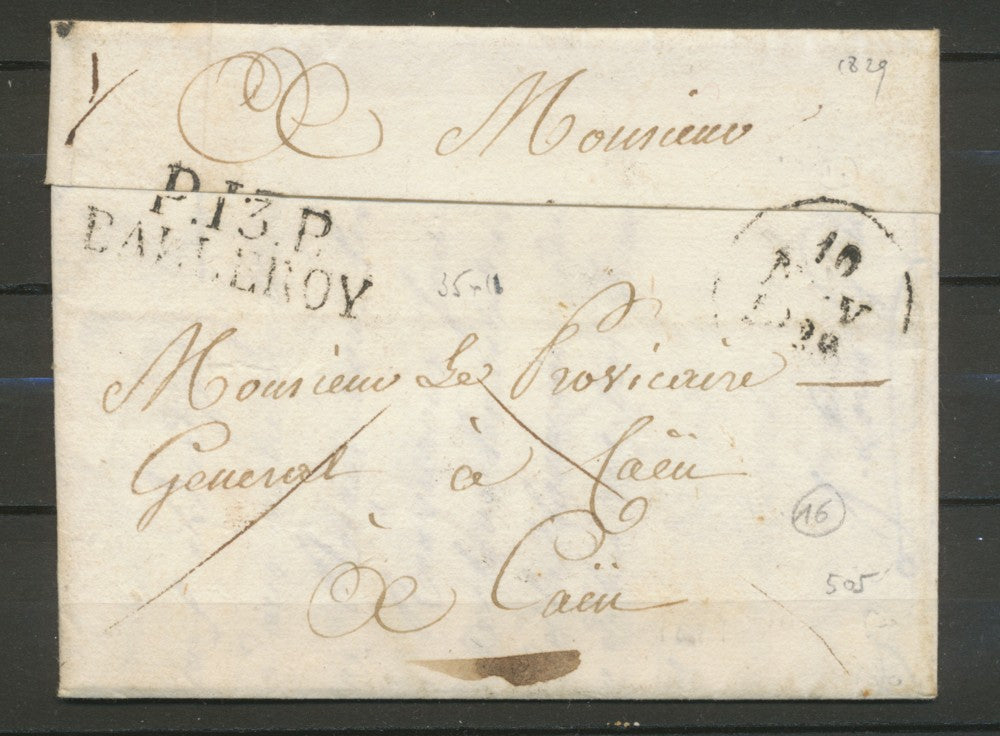 1829
à Monsieur
P.13.P.
BALLEROY
10
35+
Monsieur Le Provicaire
General à Caën
16
à Caën
505